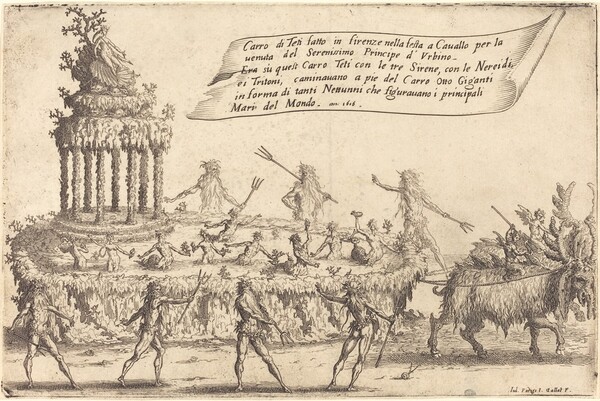 Carro di Teti fatto in firenze nella festa a Cauallo per la
uenuta del Serenissimo Principe d'Vrbino.
Era su quest Carro Teti con le tre Sirene, con le Nereidi,
ei Tritoni, caminauano a pie del Carro Otto Giganti
in forma di tanti Nettunni che figurauano i principali
Mari del Mondo. an: 1615
Iul. Parigi I. Callot F.